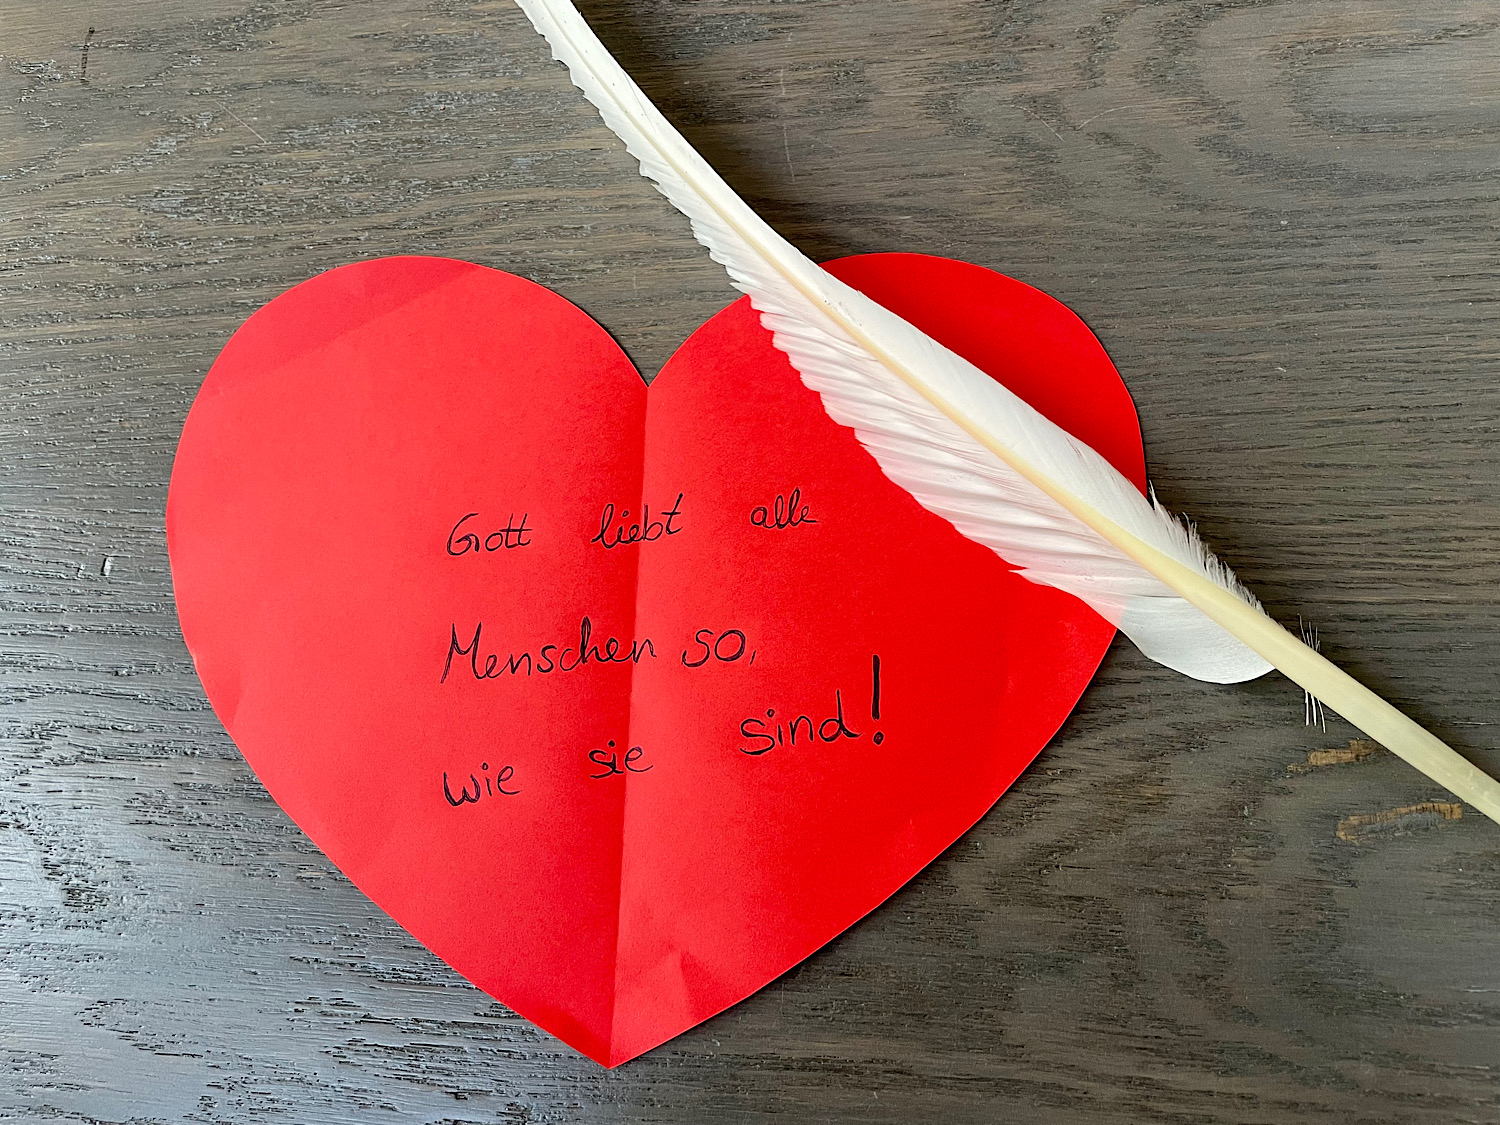 Gott liebt alle
Menschen so,
wie sie sind!